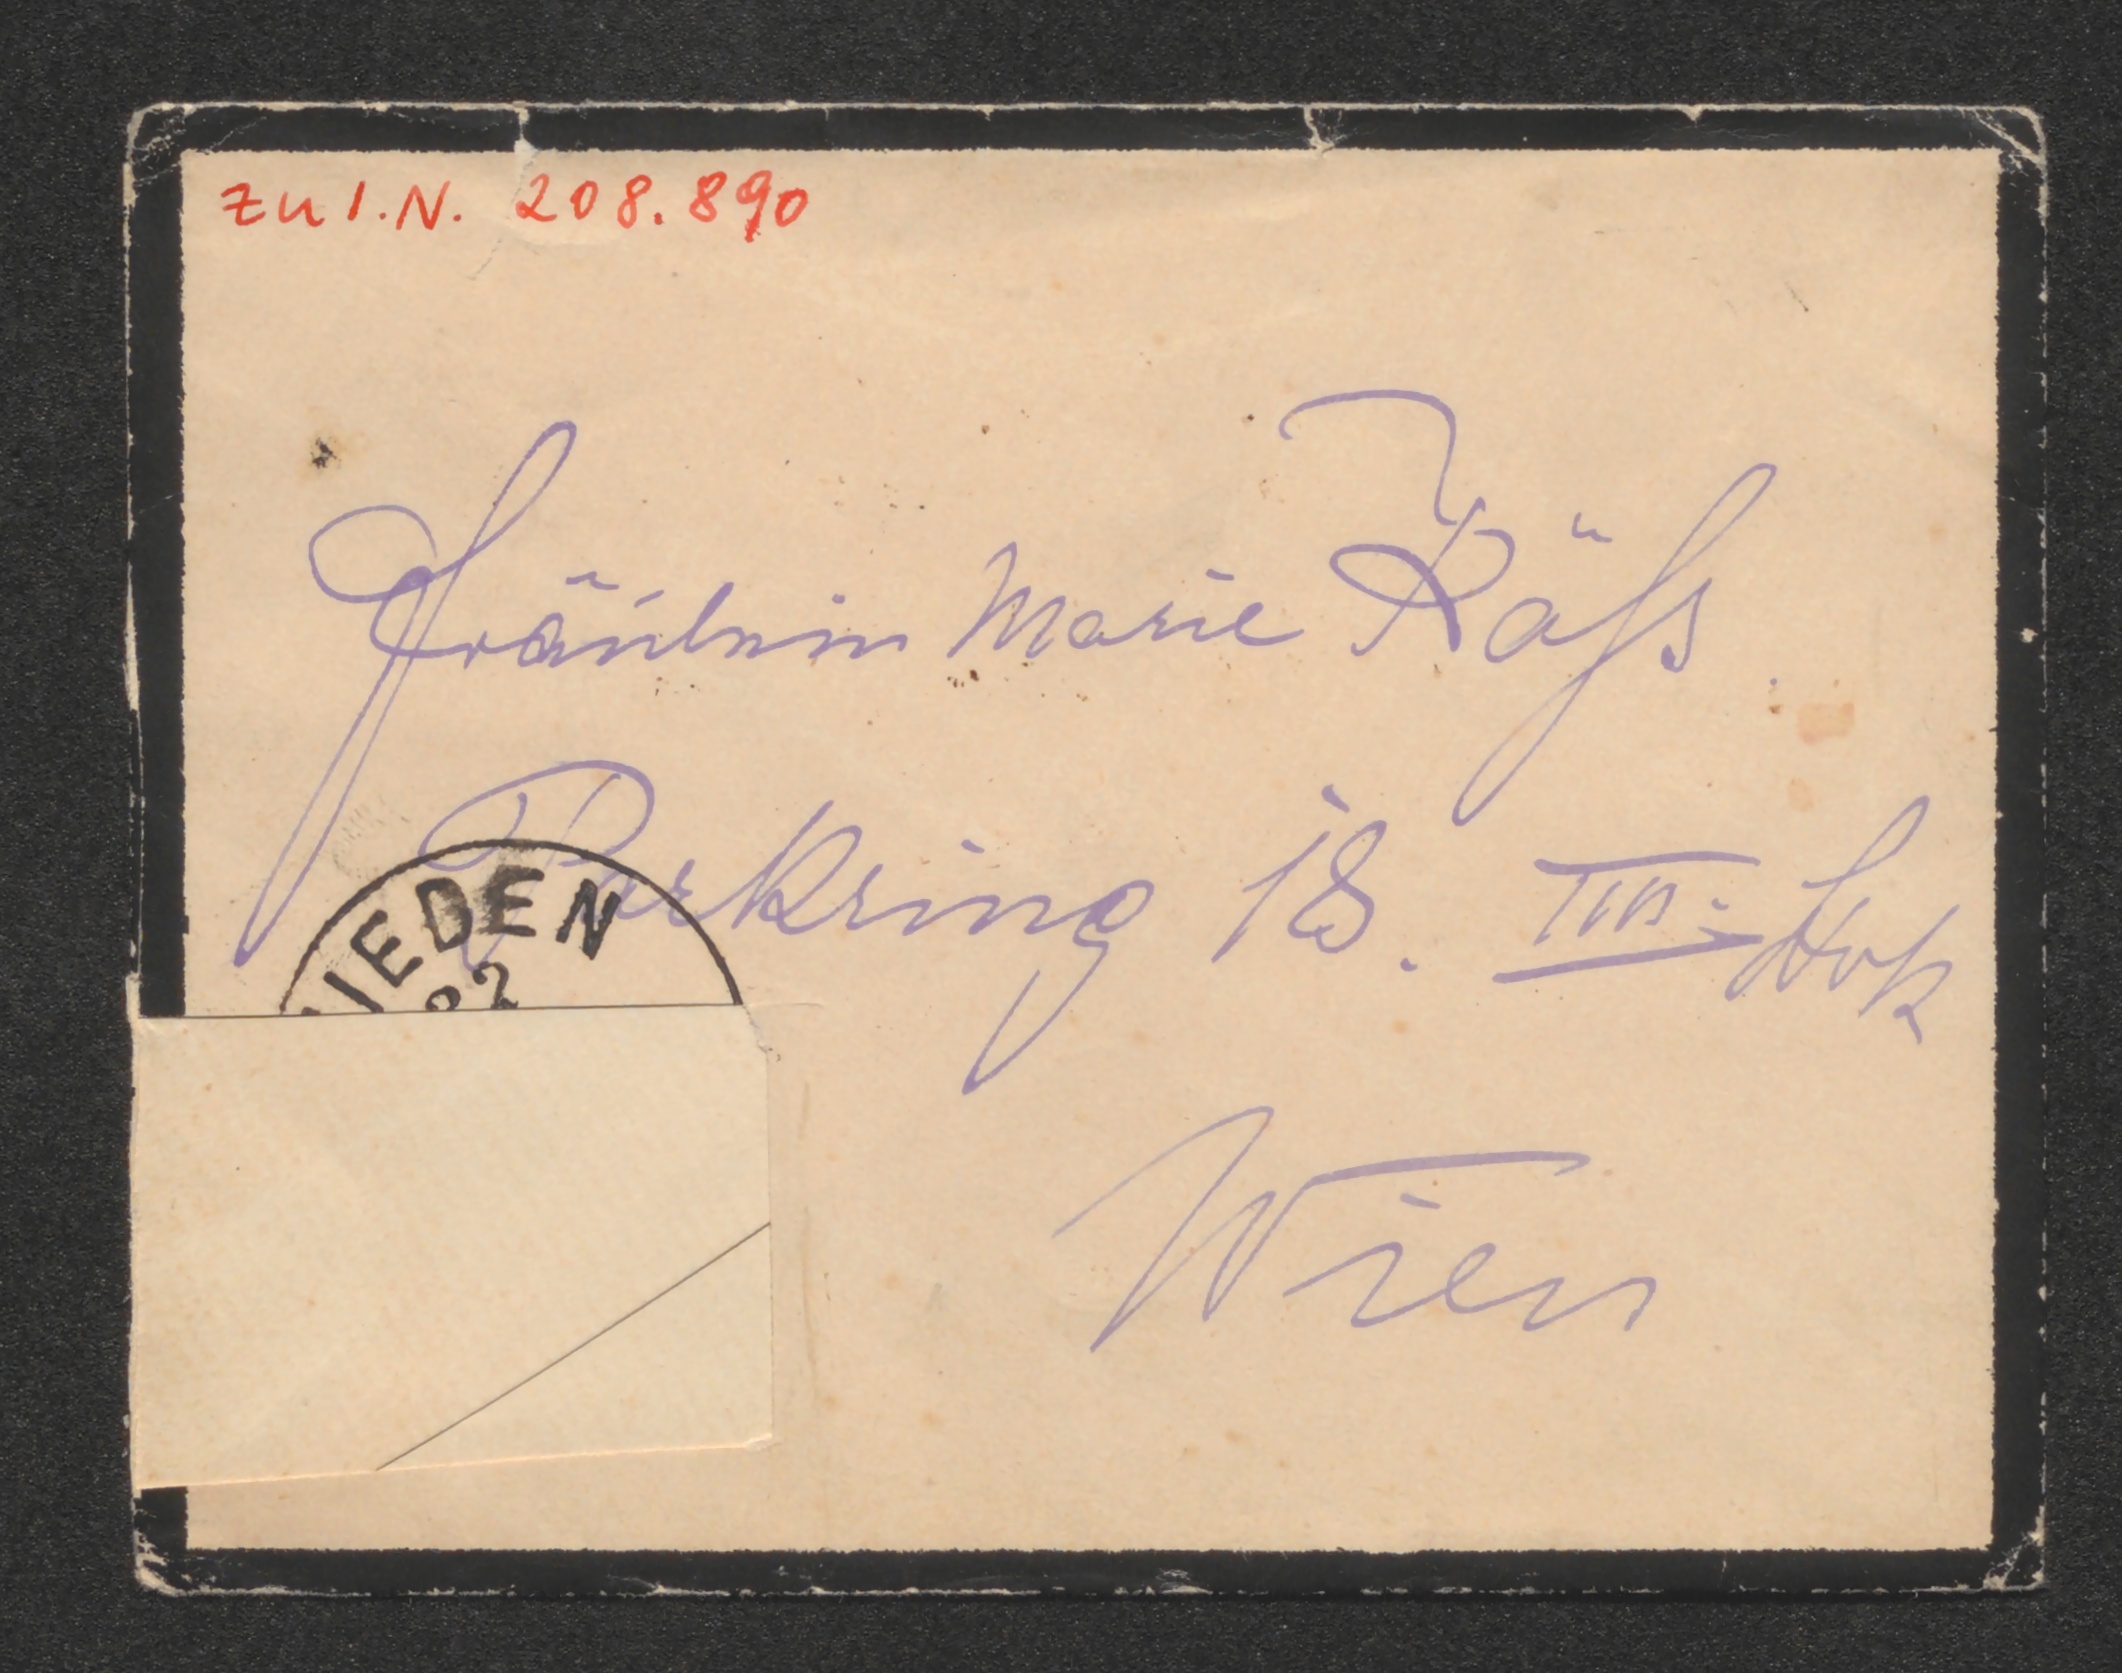 zu I.N. 208.890
Fräulein Marie Käſs.
Parkring 18. III. Stok
IEDEN
Wien